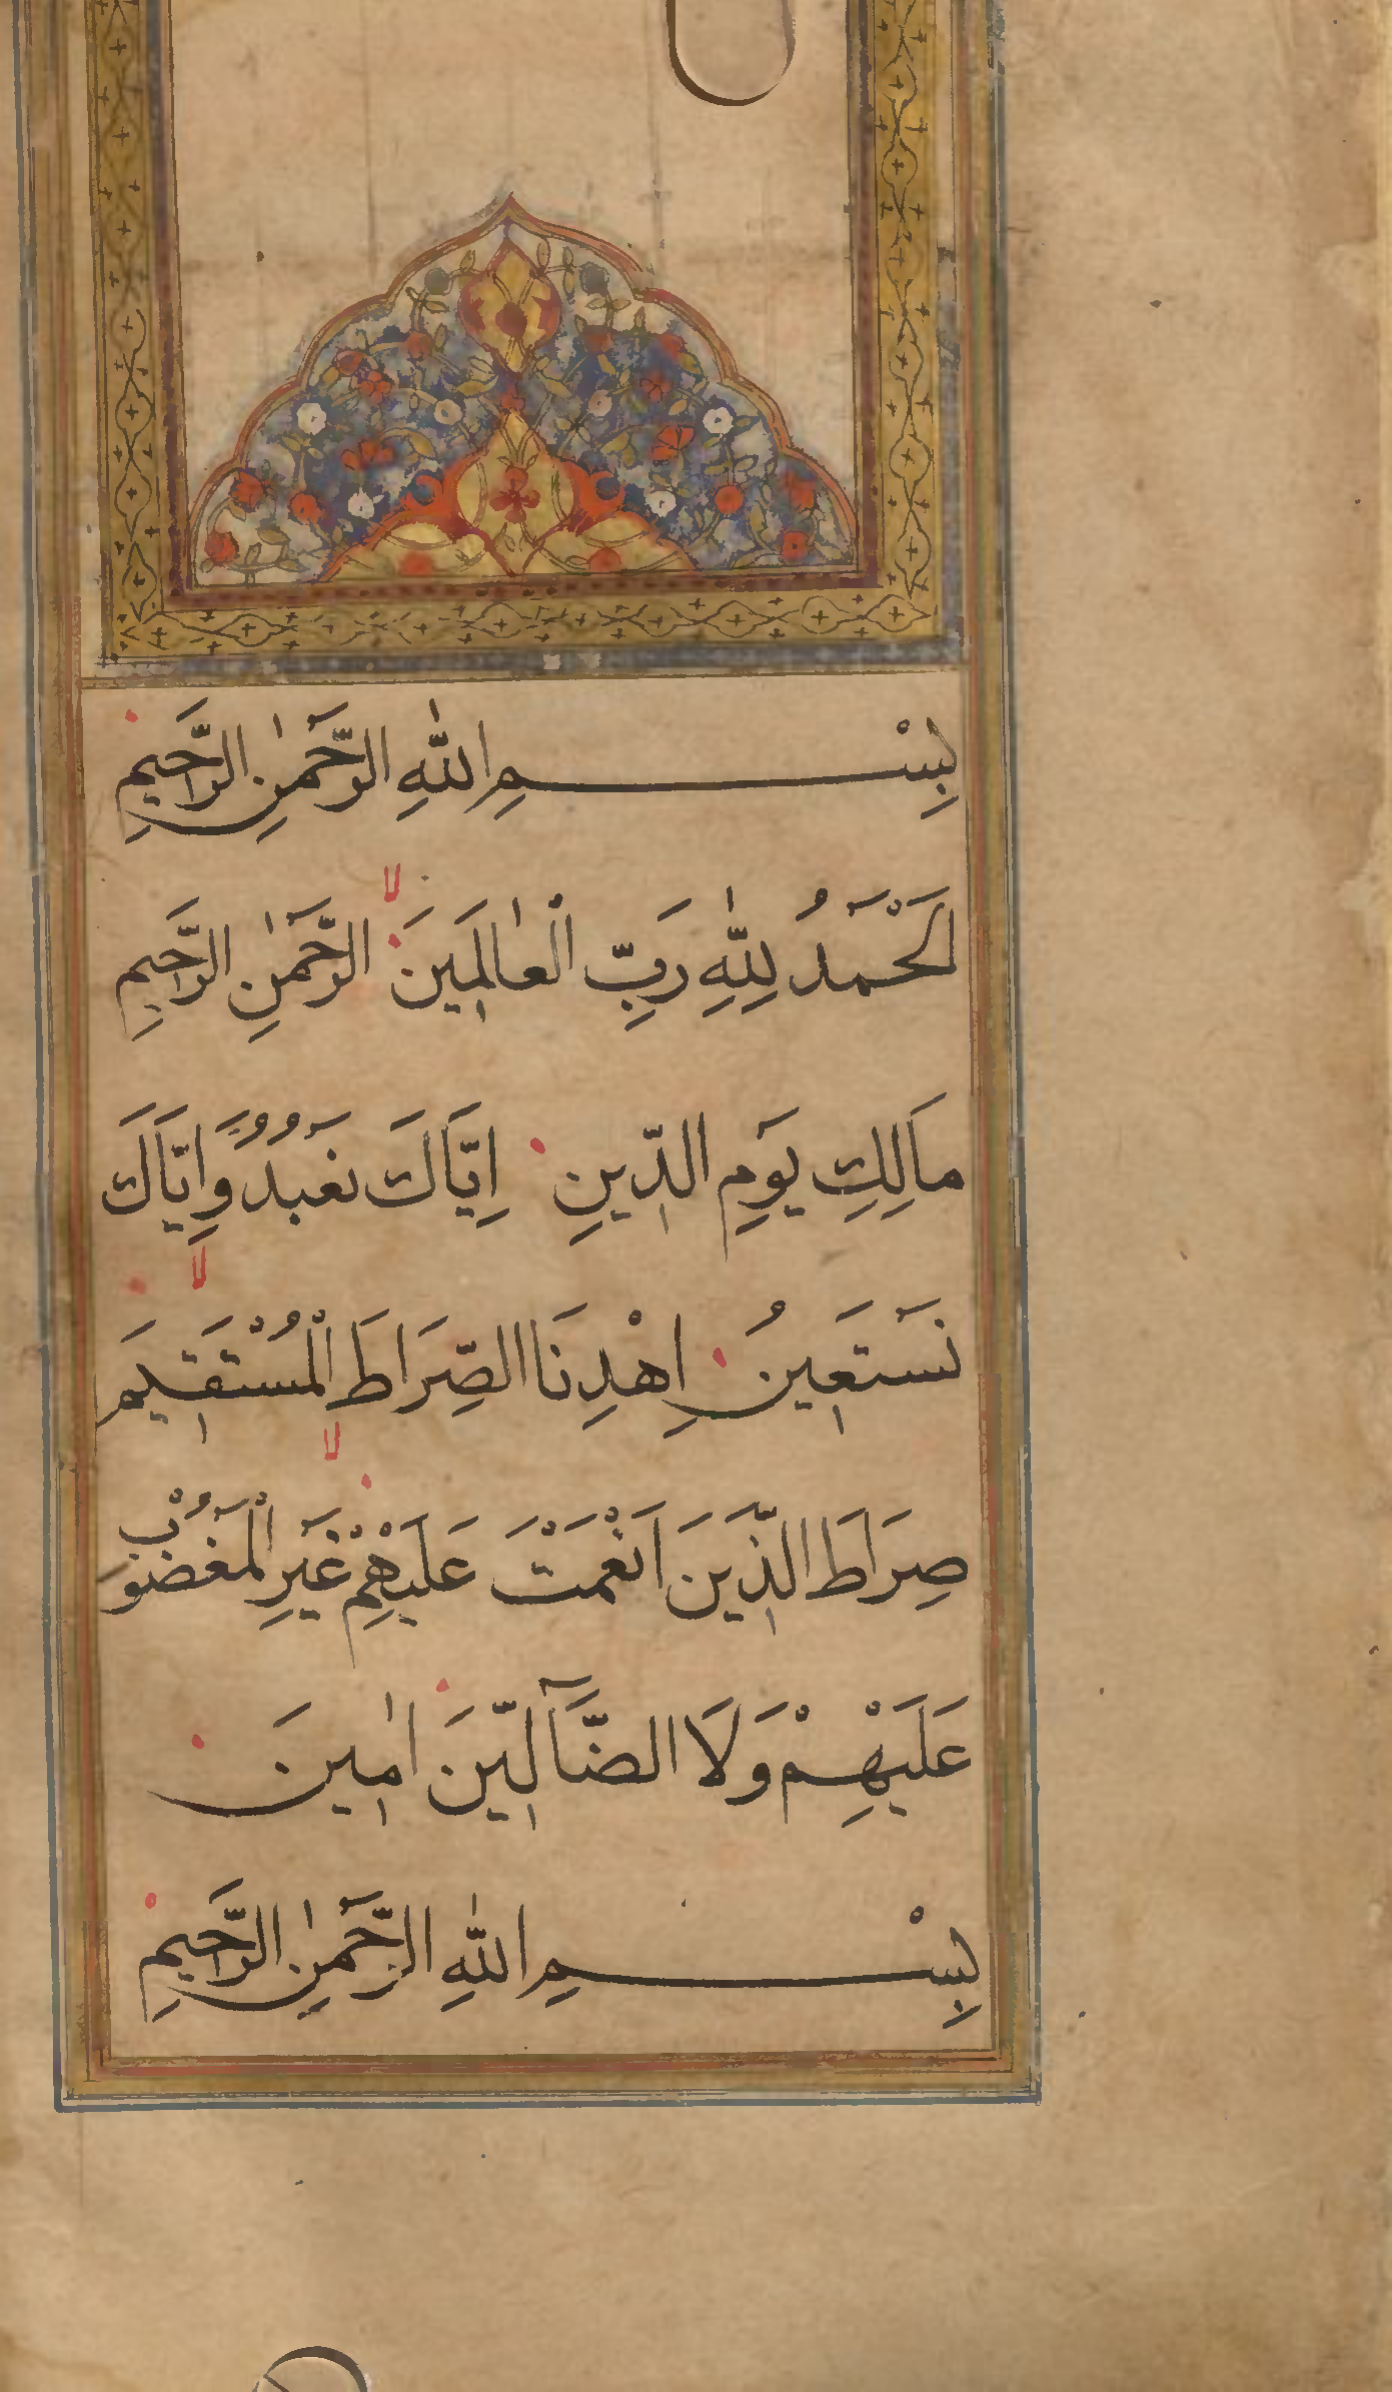 بِسْمِ اللّٰهِ الرَّحَمٰنِ الرَّحَيمِ
اَلْحَمَدُ لِلّٰهِ رَبِّ الْعٰالَمِينَ لا الرَّحَمٰنِ الرَّحَيمِ
مالَكِ يَومِ الدِّينِ اِيَّاكَ نَعبُدُ وَاِيَّاكَ
نَسَتَعِينُ لا اِهْدِنَا الصِّرَاطَ الْمُسْتَقِيَم
صِرَاطَ الَّذِينَ اَنْعَمْتَ عَلَيْهِمْ لا غَيرِ الْمَغضُوبْ
عَلَيْهِمْ وَلَا الضَّآلِّينَ اٰمِينَ
بِسْمِ اللّٰهِ الرَّحَمٰنِ الرَّحَيمِ